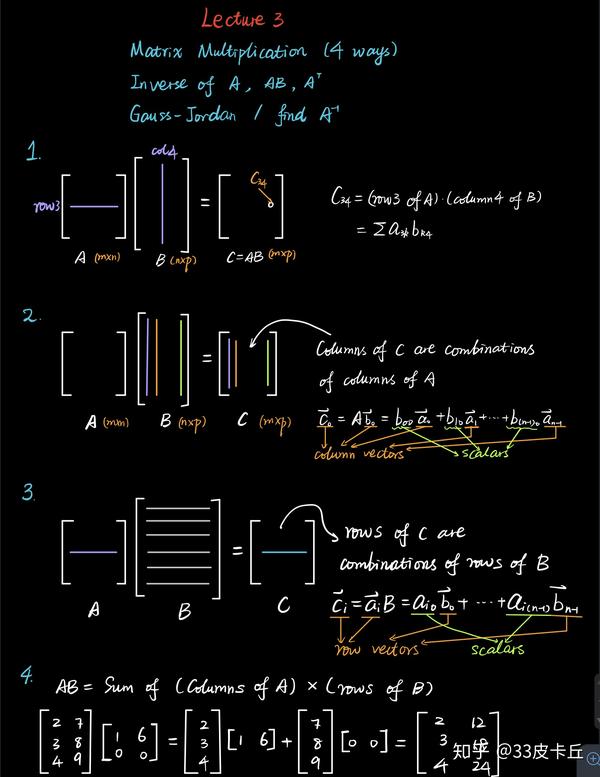 Lecture 3
Matrix Multiplication (4 ways)
Inverse of A, AB, Aᵀ
Gauss-Jordan / find A⁻¹
1.
col4
row3
C₃₄
A (mxn) B (nxp) C=AB (mxp)
C₃₄ = (row3 of A)·(column4 of B)
= Σ a₃ₖ bₖ₄
2.
=
A (mxn) B (nxp) C (mxp)
Columns of C are combinations
of columns of A
c⃗₀ = A b⃗₀ = b₀₀ a⃗₀ + b₁₀ a⃗₁ + ··· + b₍ₙ₋₁₎₀ a⃗ₙ₋₁
column vectors scalars
3.
=
A B C
rows of C are
combinations of rows of B
c⃗ᵢ = a⃗ᵢ B = aᵢ₀ b⃗₀ + ··· + aᵢ₍ₙ₋₁₎ b⃗ₙ₋₁
row vectors scalars
4.
AB = Sum of (Columns of A) × (rows of B)
[2 7] [1 6] = [2] [1 6] + [7] [0 0] = [2 12]
[3 8] [0 0] [3] [8] [3
[4 9] [4] [9] [4 24]
知乎 @33皮卡丘